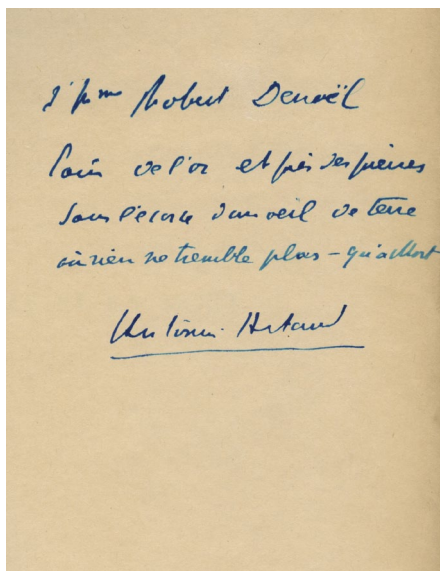 Robert Denoël
Loin de l'or et près des pierres
dans l'écorce d'un œil de terre
où rien ne tremble plus – qu'a Mort
Antonin Artaud